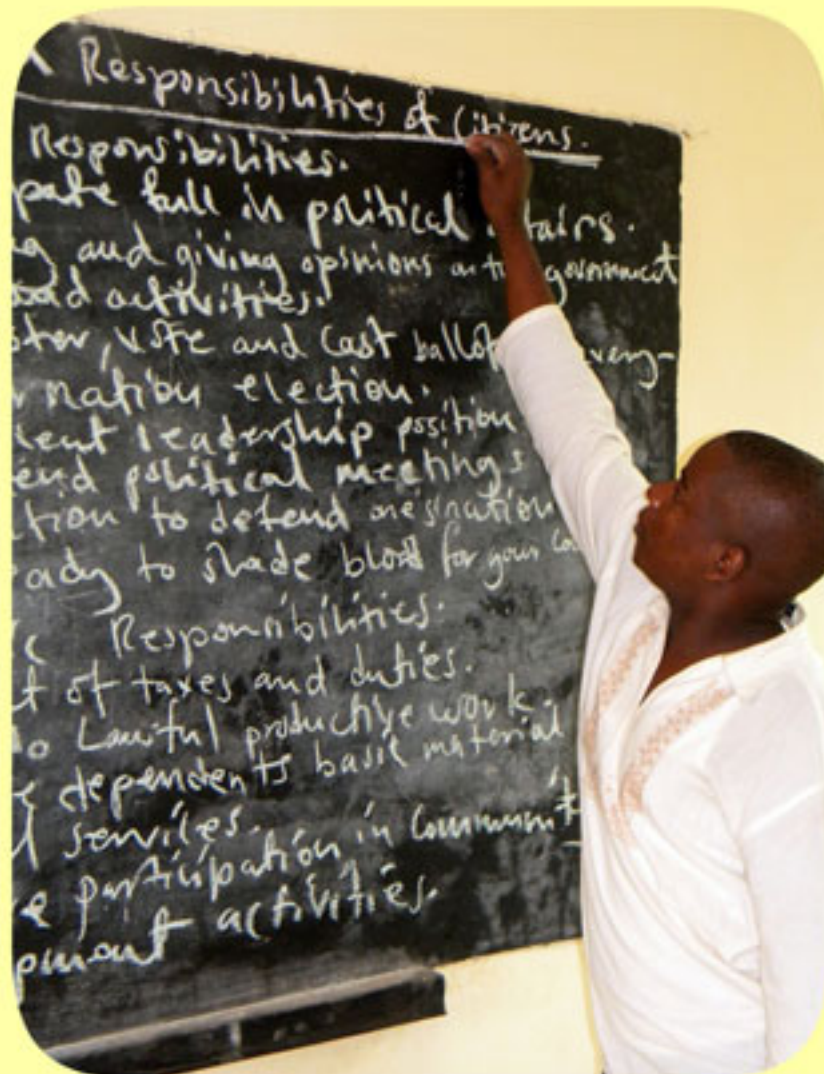 Responsibilities of Citizens.
Responsibilities.
pate full in political affairs.
g and giving opinions on the government
and activities.
ster, vote and cast ballot every-
nation election.
lent leadership position
end political meetings
tion to defend one's nation
ady to shade blood for your Co
c Responsibilities.
t of taxes and duties.
o Lawful productive work.
dependents basic material
d services.
e participation in Communit
pment activities.